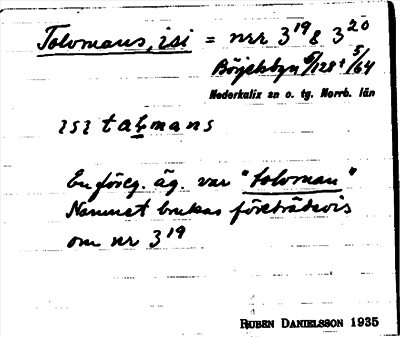 Tolvmans, isi = nrr 3¹⁹ & 3²⁰
Börjelsbyn 6/128 + 5/64
Nederkalix sn o. tg. Norrb. län
ısı talmans
En föreg. äg. var "tolvman"
Namnet brukas företrädesvis
om nr 3¹⁹
RUBEN DANIELSSON 1935